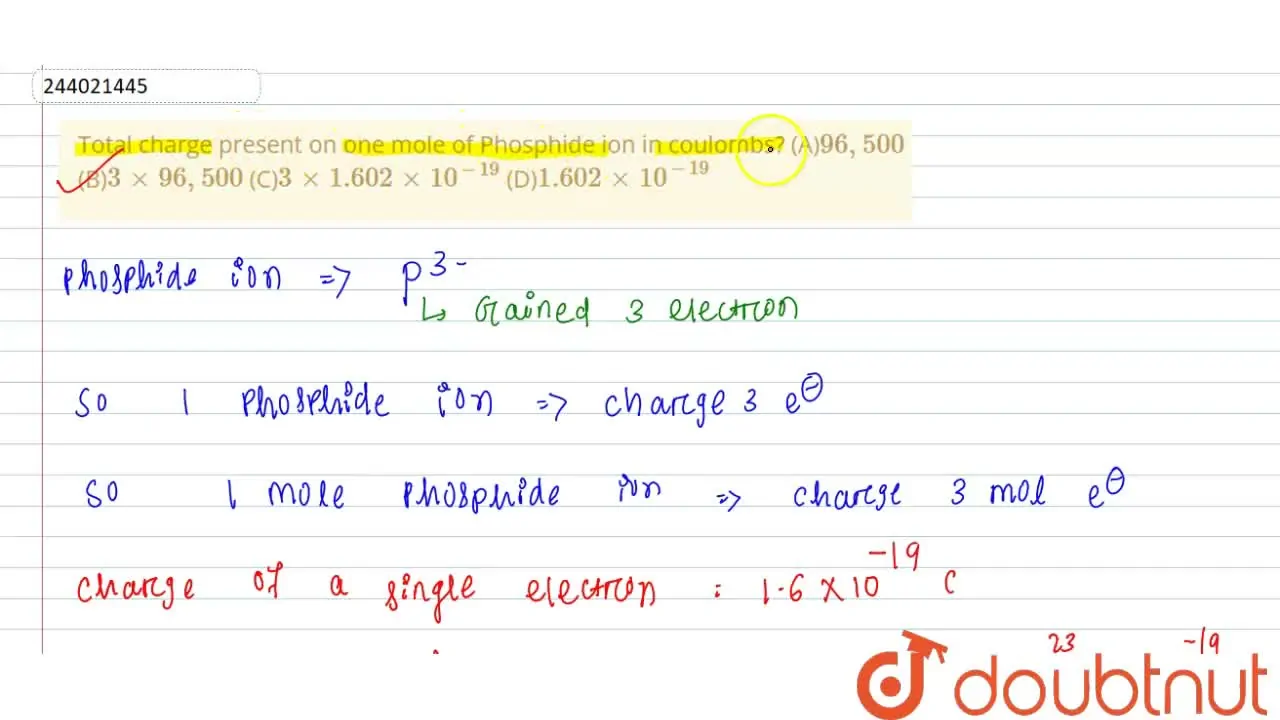 244021445
Total charge present on one mole of Phosphide ion in coulornbs? (A)96, 500
(B)3 × 96, 500 (C)3 × 1.602 × 10⁻¹⁹ (D)1.602 × 10⁻¹⁹
Phosphide ion => P³⁻
↳ Gained 3 electron
So 1 Phosphide ion => charge 3 e⊖
So 1 mole Phosphide ion => charge 3 mol e⊖
charge of a single electron = 1.6 × 10⁻¹⁹ C
23 -19
doubtnut